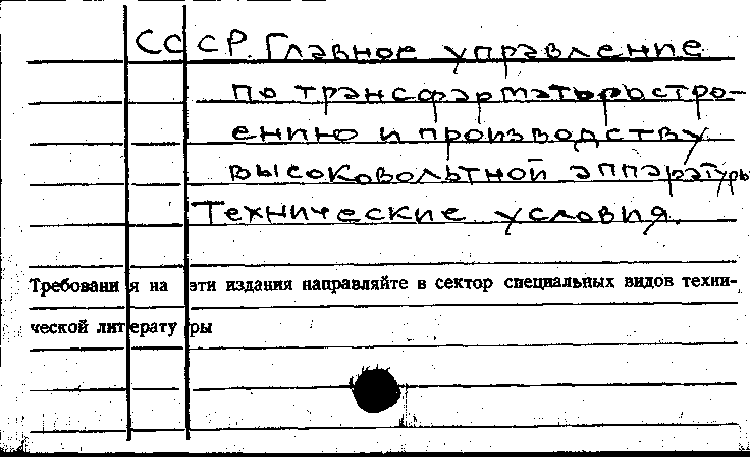 СССР. Главное управление
по трансформаторостро-
ению и производству
высоковольтной аппаратуры
Технические условия.
Требования на эти издания направляйте в сектор специальных видов техни-
ческой литературы